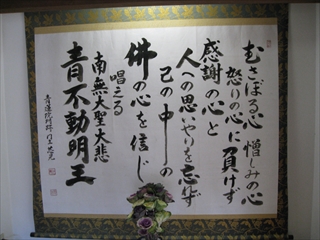 むさぼる心 憎しみの心
怒りの心に負けず
感謝の心と
人への思いやりを忘れず
己の中の
佛の心を信じ
唱える
南無大聖大悲
青不動明王
青蓮院門跡門主